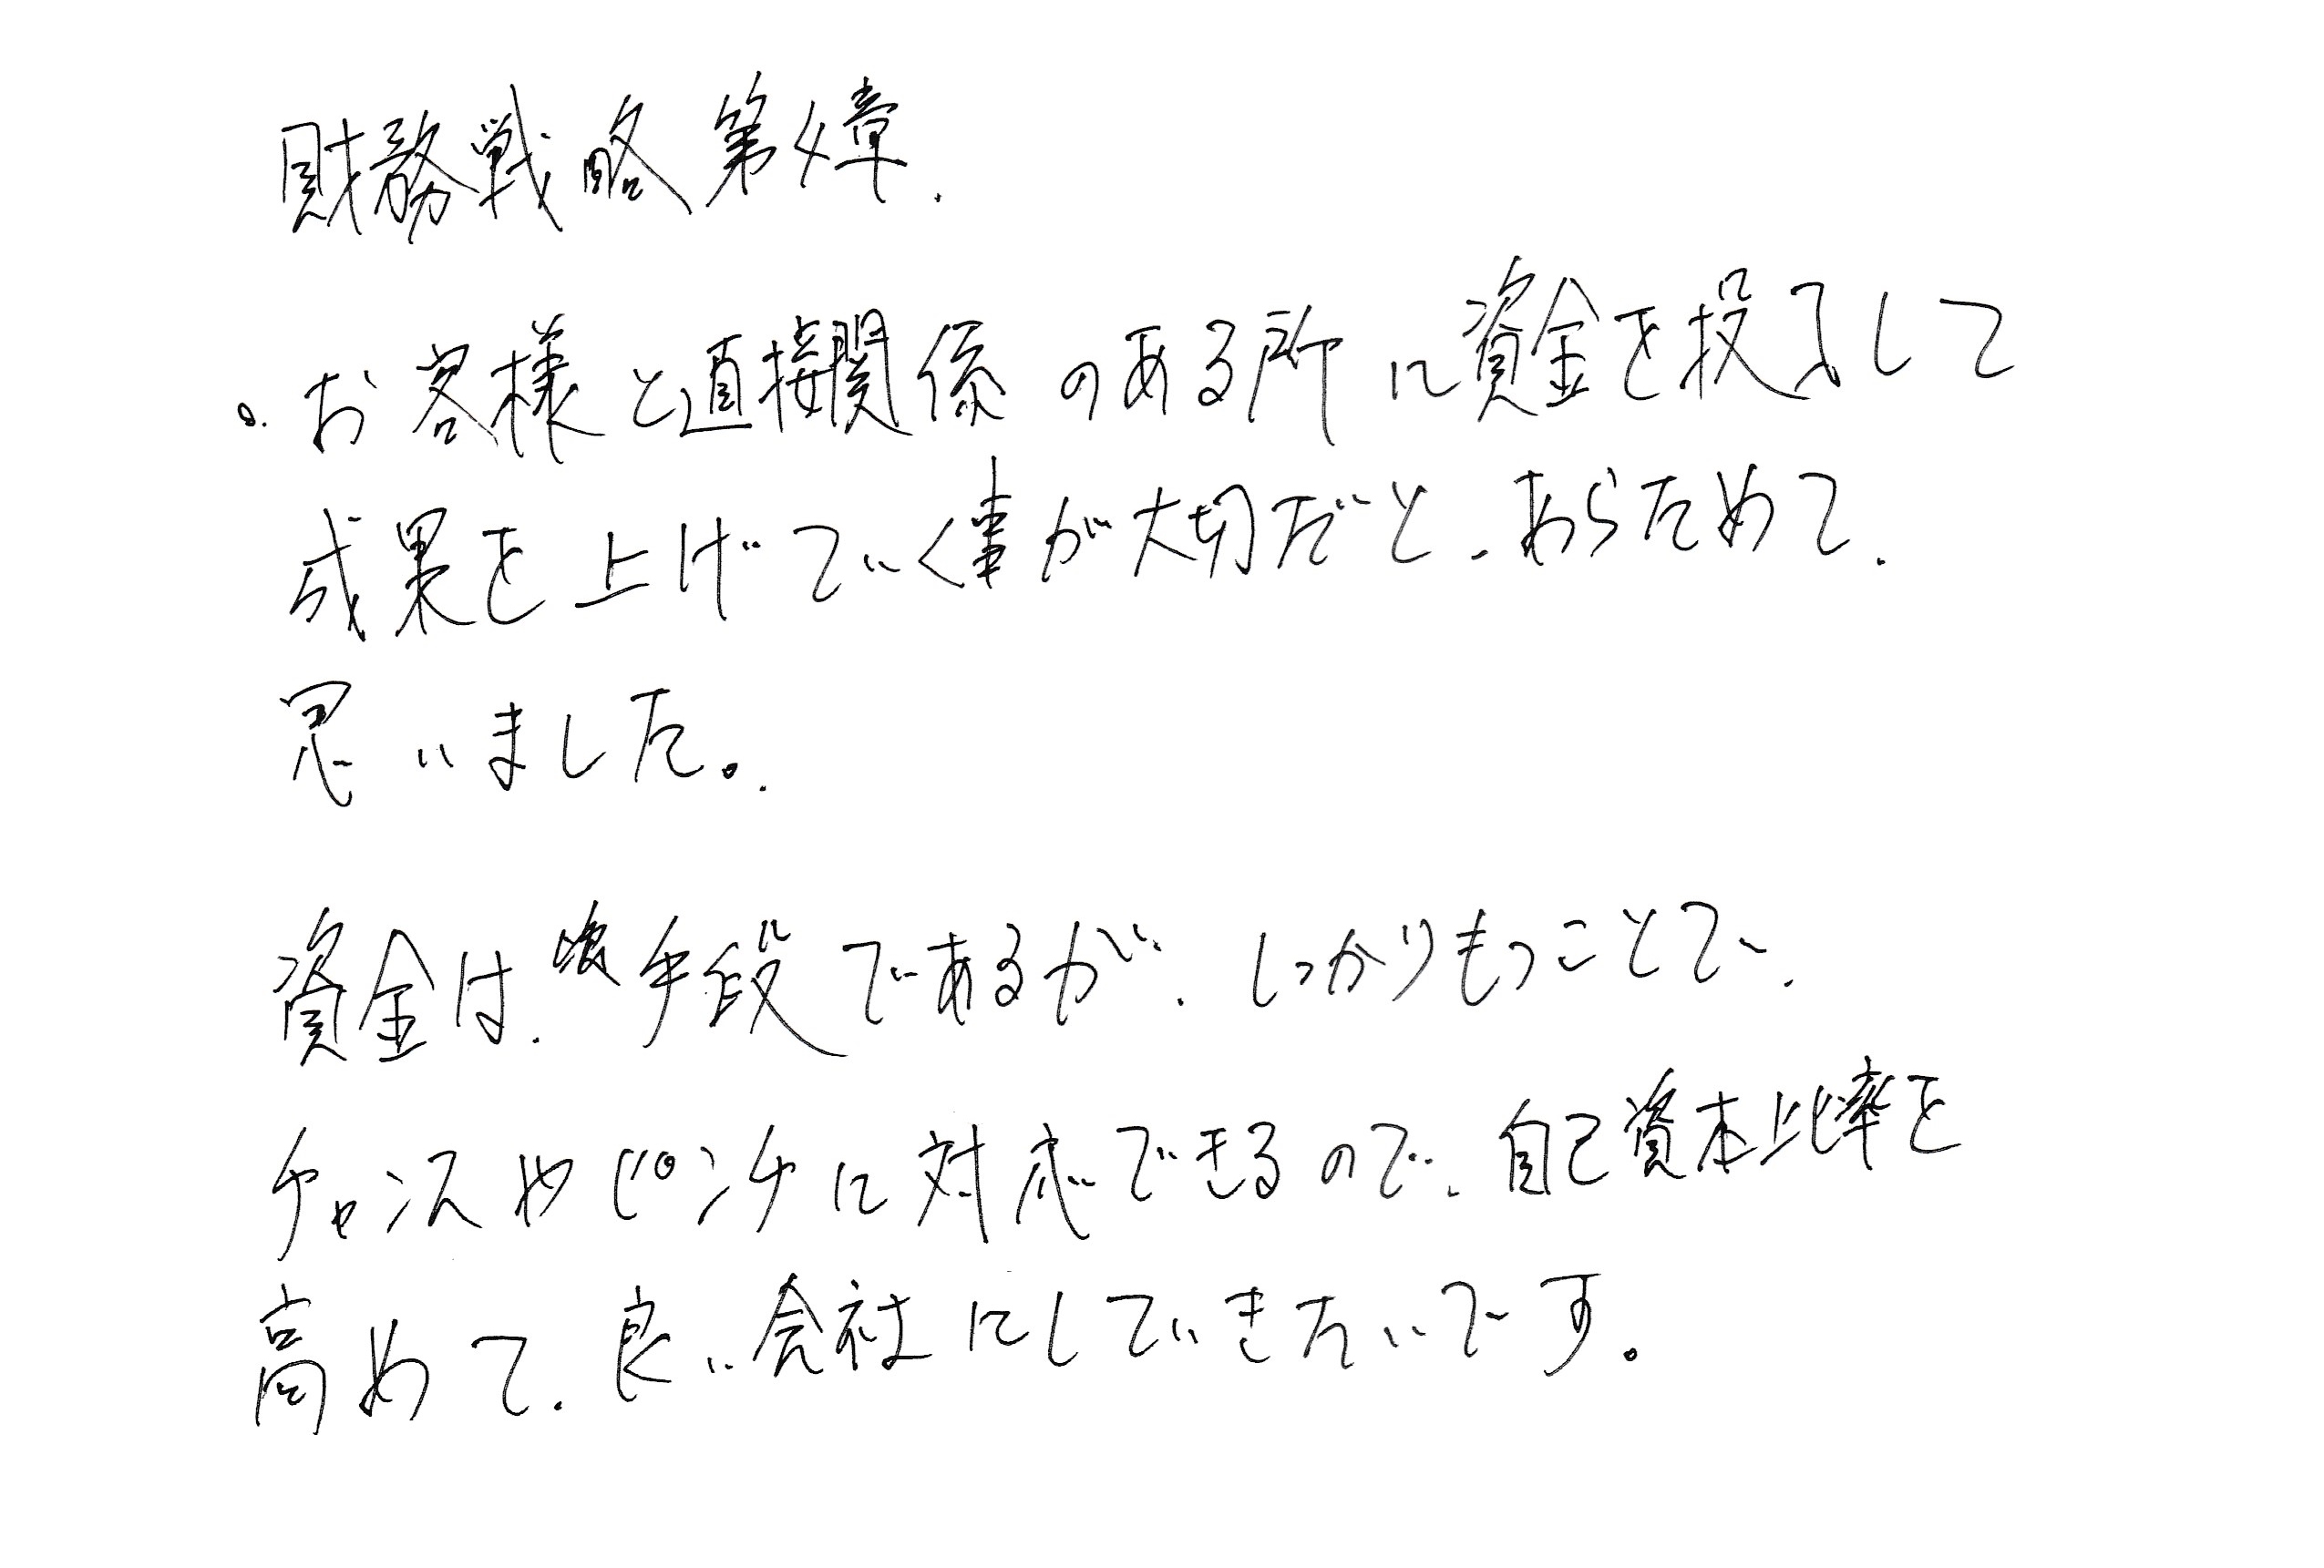 財務戦略第4章.
。お客様と直接関係のある所に資金を投入して
成果を上げていく事が大切だと、あらためて、
思いました。
資金は、手段であるが、しっかりもつことで、
チャンスやピンチに対応できるので、自己資本比率を
高めて、良い会社にしていきたいです。